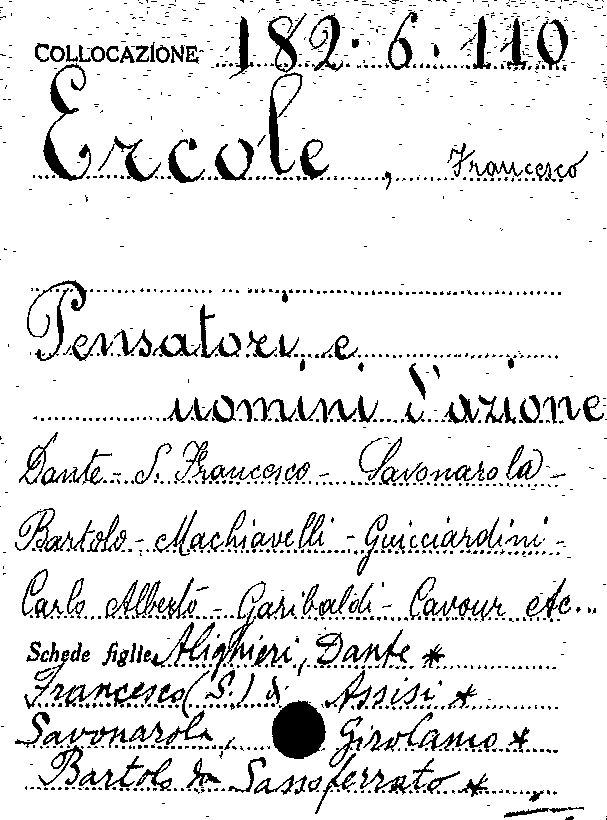 COLLOCAZIONE 182.6.110
Ercole, Francesco
Pensatori e
uomini d'azione
Dante - S. Francesco - Savonarola -
Bartolo - Machiavelli - Guicciardini -
Carlo Alberto - Garibaldi - Cavour etc...
Schede figlie Alighieri, Dante *
Francesco (S.) d' Assisi *
Savonarola, Girolamo *
Bartolo da Sassoferrato *